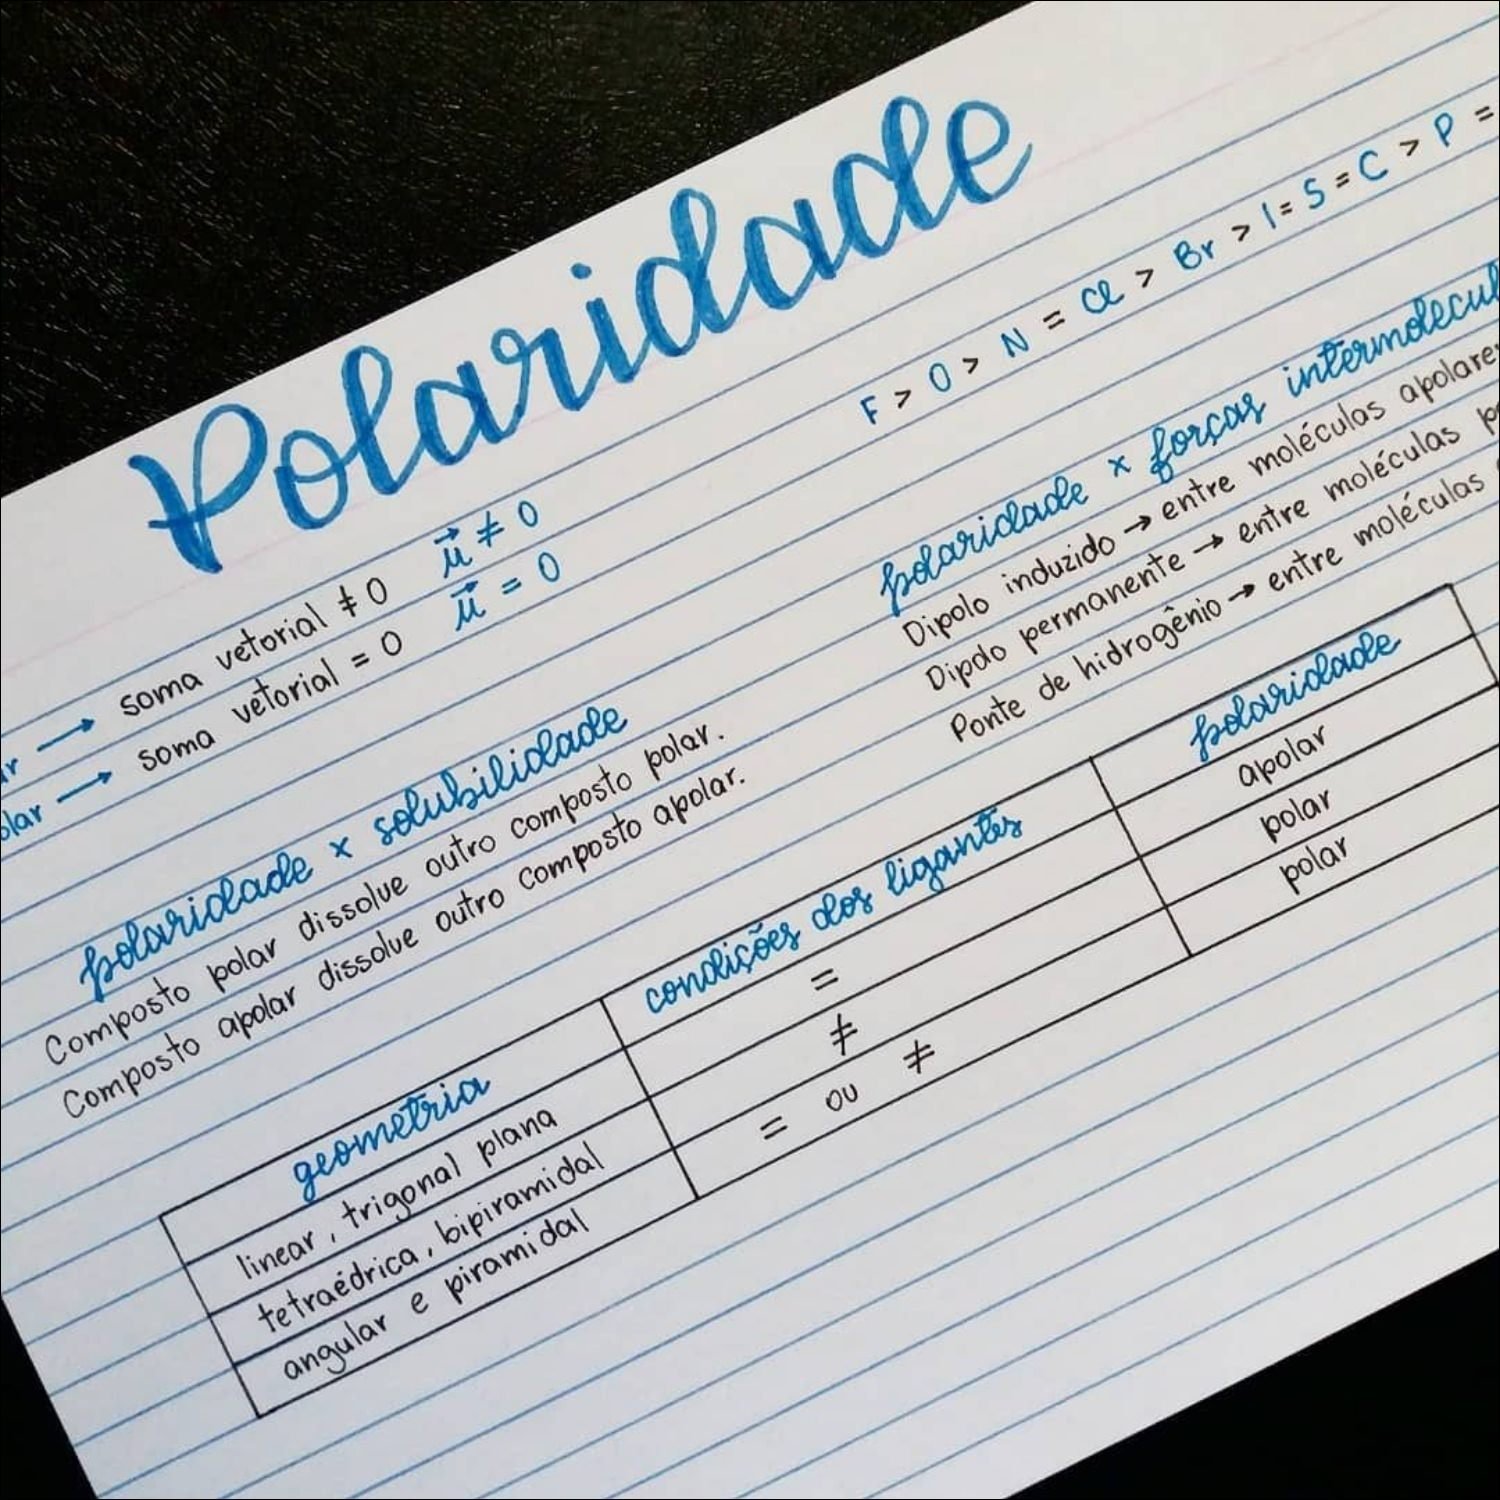 Polaridade
F > O > N = Cl > Br > I = S = C > P =
soma vetorial ≠ 0 μ⃗ ≠ 0
soma vetorial = 0 μ⃗ = 0
polaridade x solubilidade
Composto polar dissolve outro composto polar.
Composto apolar dissolve outro composto apolar.
polaridade x forças
Dipolo induzido → entre moléculas
Dipolo permanente → entre moléculas
Ponte de hidrogênio → entre moléculas
geometria condições dos ligantes polaridade
linear, trigonal plana = apolar
tetraédrica, bipiramidal ≠ polar
angular e piramidal = ou ≠ polar